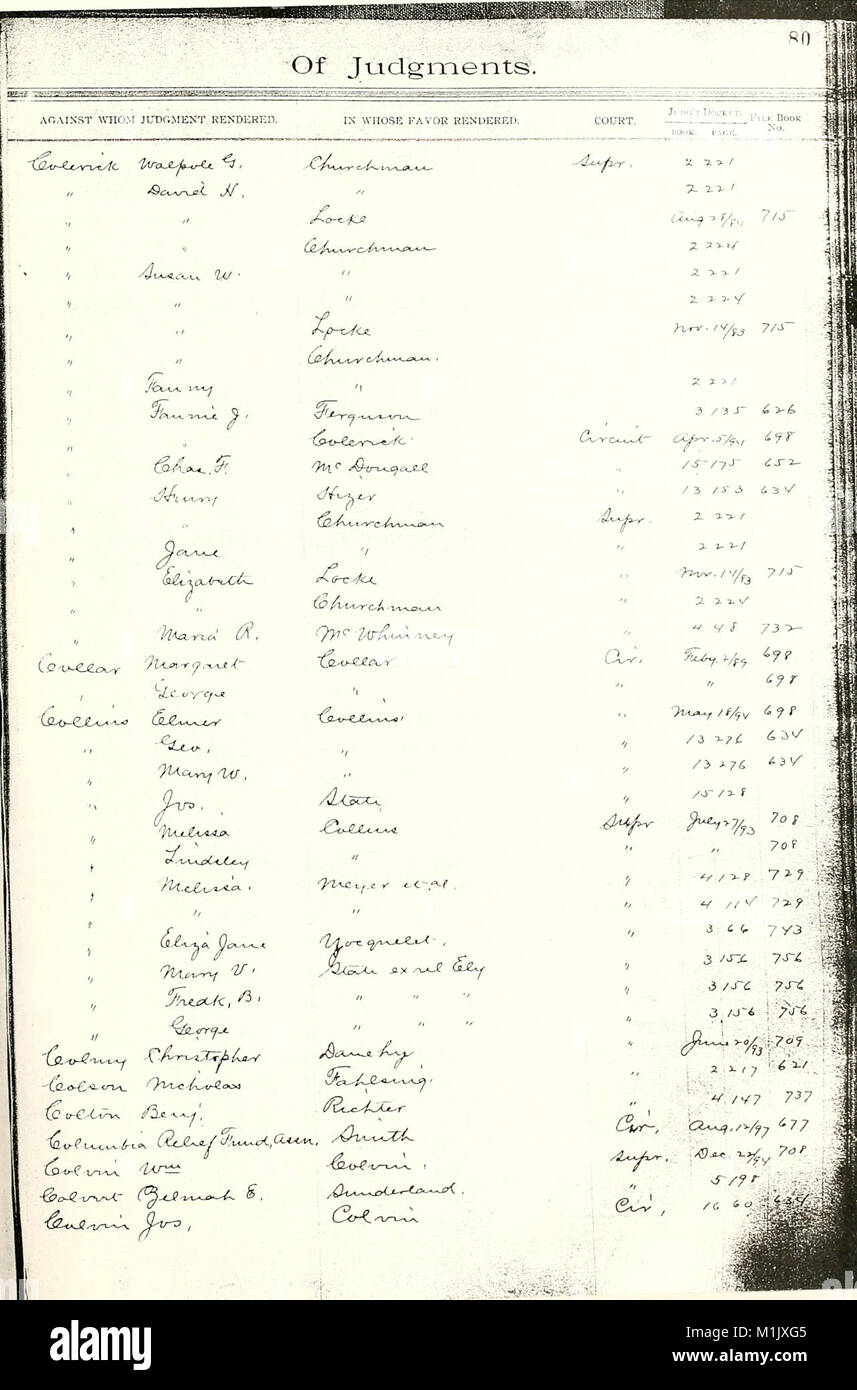 80
Of Judgments.
AGAINST WHOM JUDGMENT RENDERED. IN WHOSE FAVOR RENDERED. COURT. JUDG'T DOCKET. BOOK. PAGE. FILE BOOK No.
Colerick Walpole G. Churchman Supr. 2 221
" David H. " 2 221
" " Locke Aug 28/84 715
" " Churchman 2 224
" Susan W. " 2 221
" " " 2 224
" " Locke Nov. 14/83 715
" " Churchman.
" Fanny " 2 221
" Fannie J. Ferguson 3 135 626
" " Colerick Circuit Apr. 5/94 698
" Chas. F. McDougall " 15 175 652
" Henry Hizer " 13 153 634
" " Churchman Supr. 2 221
" Jane " " 2 221
" Elizabeth Locke " Nov. 14/83 715
" " Churchman " 2 224
" Maria R. McWhinney " 4 48 732
Collar Margaret Collar Cir. Feby. 2/89 698
" George " " " 698
Collins Elmer Collins " May 18/94 698
" Geo. " " 13 276 634
" Mary W. " " 13 276 634
" Jos. State " 15 128
" Melissa Collins Supr July 27/93 708
" Lindsley " " " 708
" Melissa. Meyer et al. " 4 128 729
" " " " 4 114 729
" Eliza Jane Yocquelet. " 3 66 743
" Mary V. State ex rel Ely " 3 156 756
" Fredk, B. " " " " 3 156 756
" George " " " 3 156 756
Christopher Danehy " June 20/93 709
Colson Nicholas " 2 217 621
Colton Benj. Richter " 4 147 737
Columbia Relief Fund, Assn. Smith Cir. Aug. 12/97 677
Colvin Wm Colvin. Supr. Dec. 22/94 708
Colvert E. Sunderland. " 5 198
Colvin Jos, Colvin Cir, 16 60 634
alamy
Image ID: M1JXG5
www.alamy.com